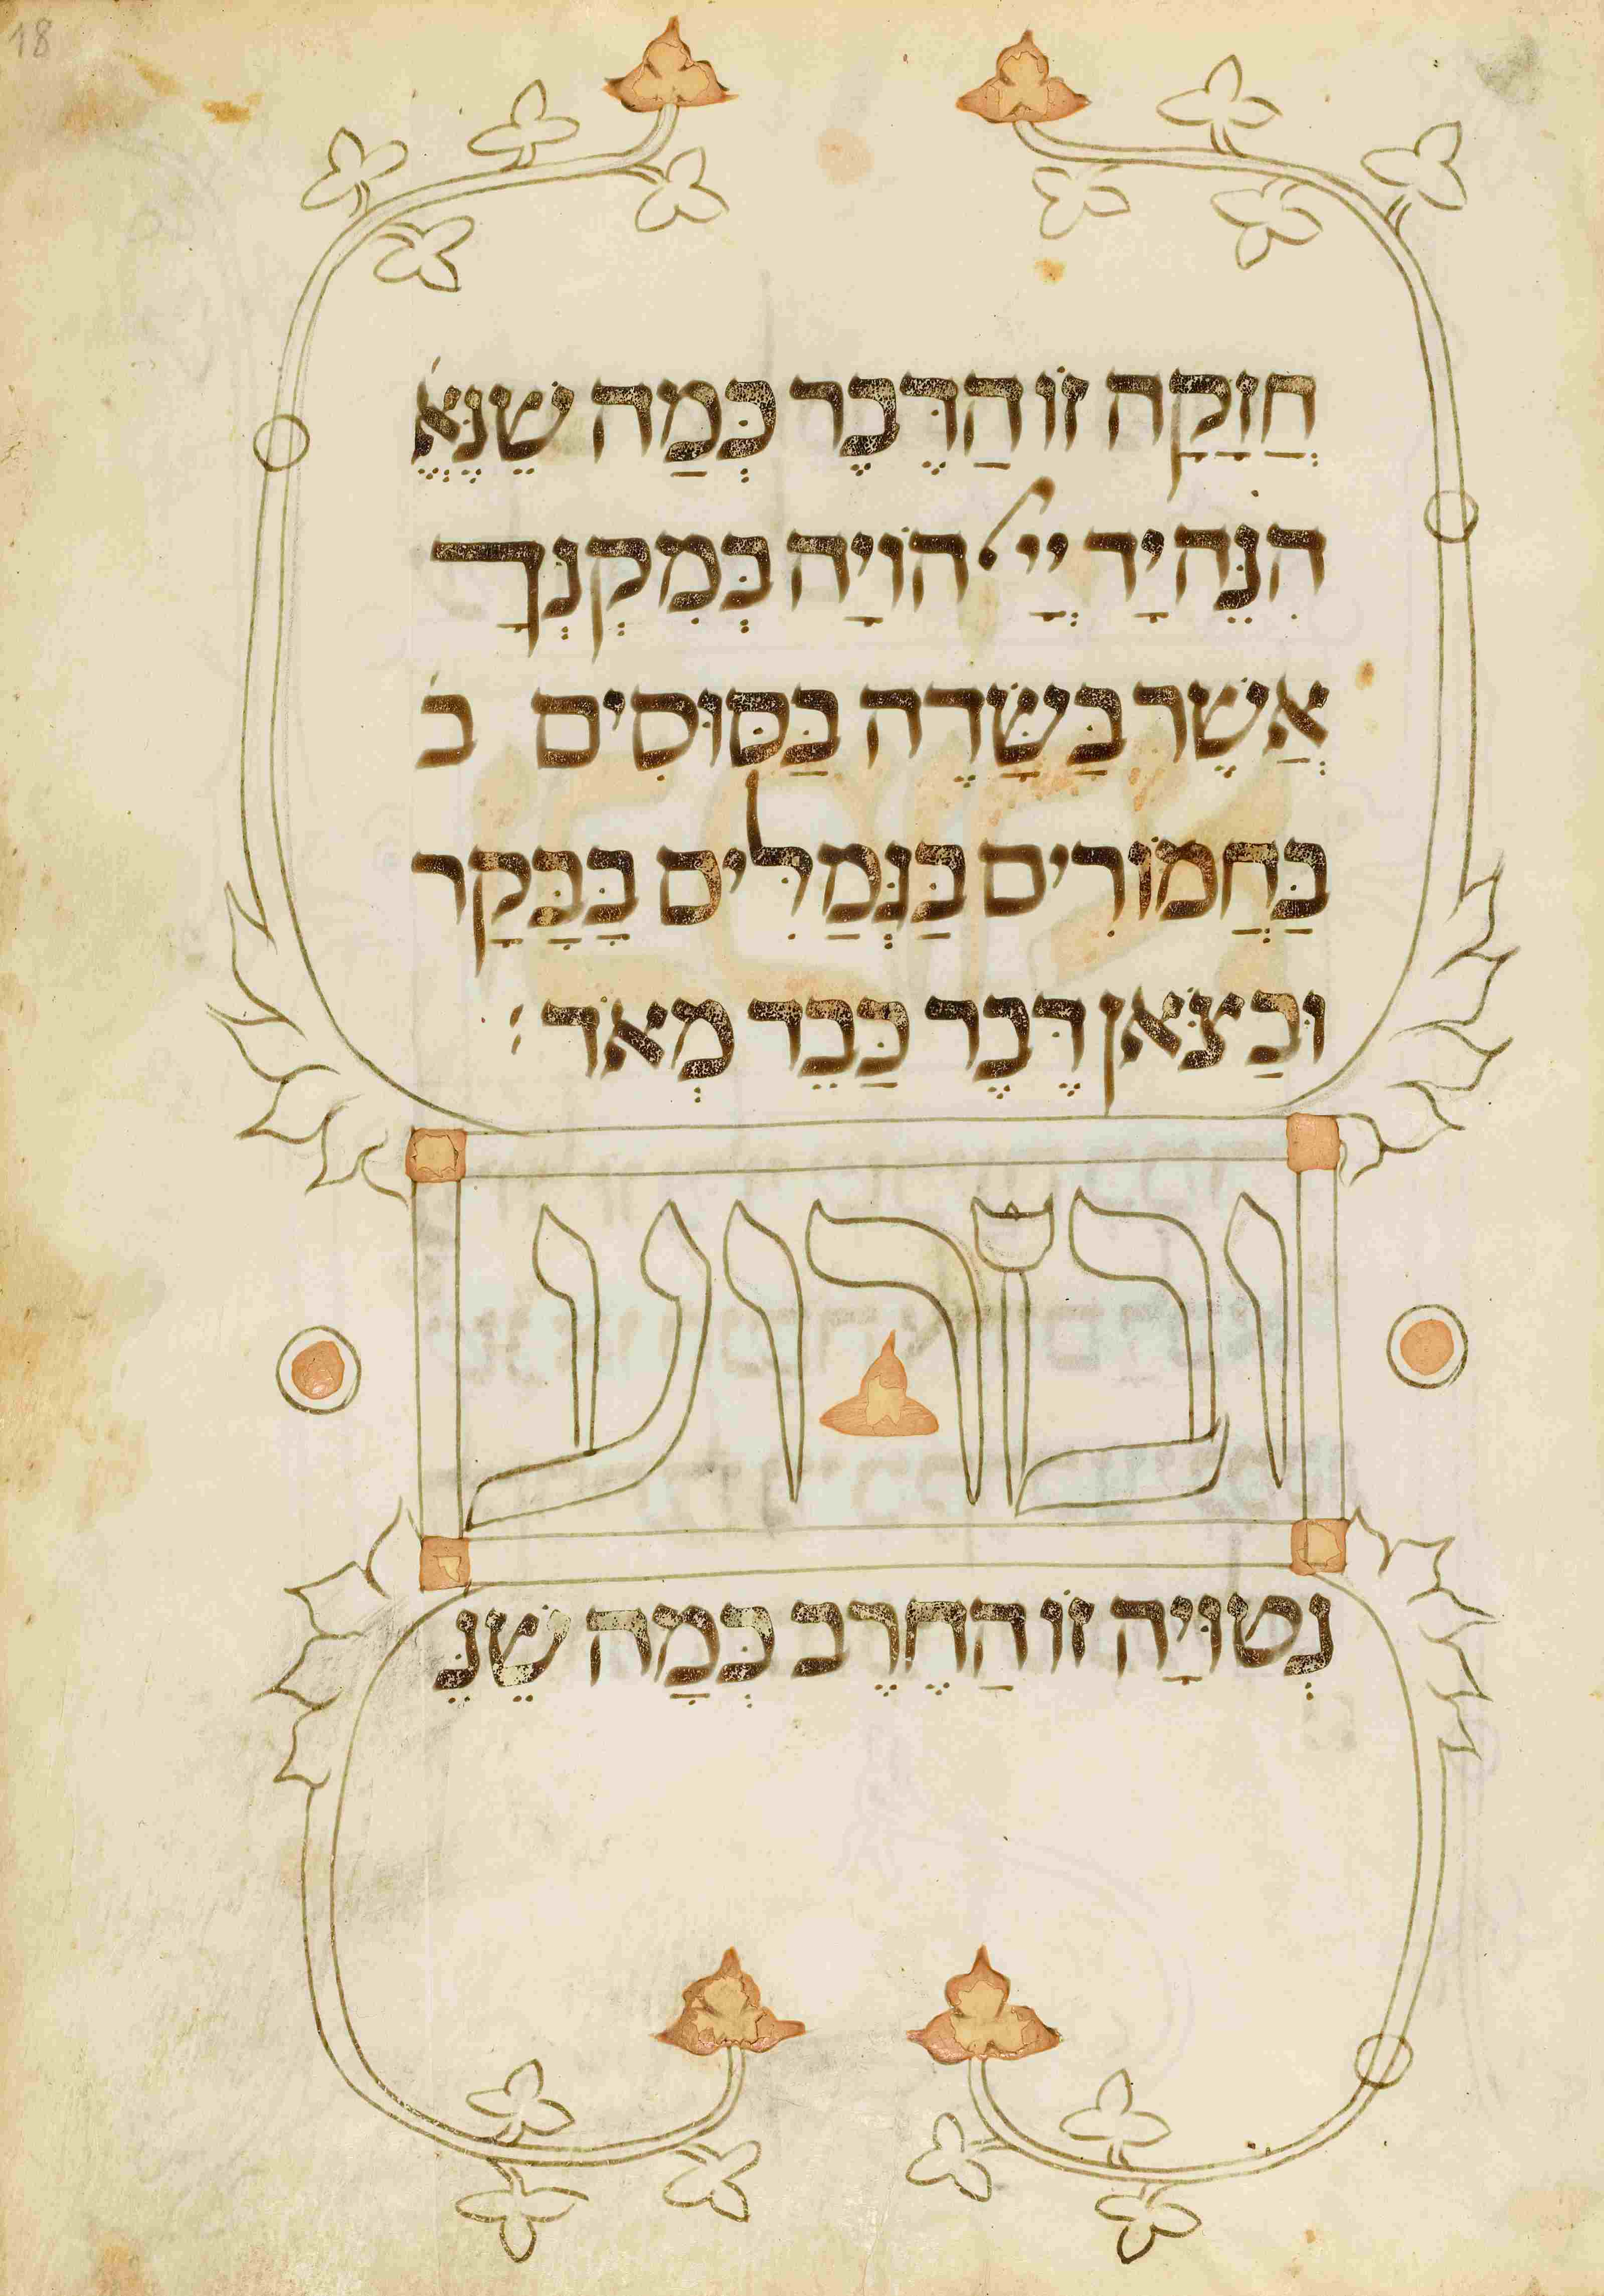 18
חֲזָקָה זוֹ הַדֶּבֶר כְּמַה שֵׁנֶּאֱ׳
הִנֵּה יָד יְיָ הוֹיָה בְּמִקְנְךָ
אֲשֶׁר בַּשָּׂדֶה בַּסּוּסִים ב׳
בַּחֲמוֹרִים בַּגְּמַלִּים בָּבָּקָר
וּבַצֹּאן דֶּבֶר כַּבֵד מְאֹד׃
ובזרוע
נְטוּיָה זוֹ הַחֶרֶב כְּמָה שֵׁנֶּ